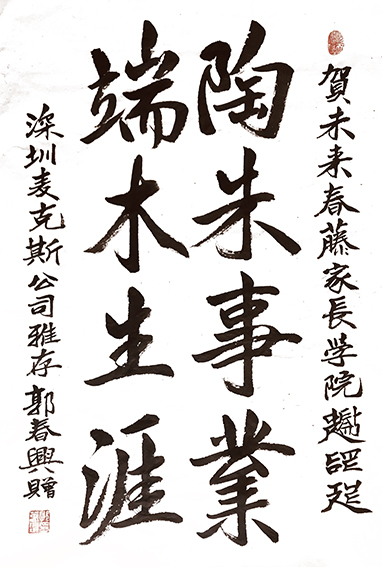 賀未来春藤家長学院
陶朱事業
端木生涯
深圳麦克斯公司雅存 郭春興贈